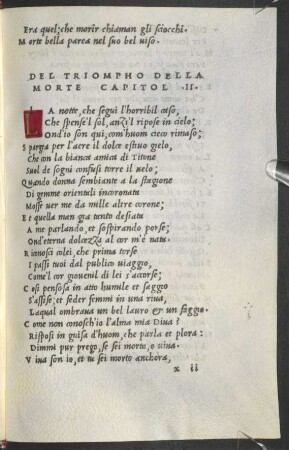 Era quel; che morir chiaman gli sciocchi.
Morte bella parea nel suo bel uiso.
DEL TRIOMPHO DELLA
MORTE CAPITOL .II.
LA notte, che seguì l'horribil caso,
Che spense'l sol, anzi'l ripose in cielo;
Ond'io son qui, com'huom cieco rimaso;
Spargea per l'aere il dolce estiuo gielo,
Che con la bianca amica di Titone
Suol de sogni confusi torre il uelo;
Quando donna sembiante a la stagione
Di gemme orientali incoronata
Mosse uer me da mille altre corone;
Et quella man gia tanto desiata
A me parlando, et sospirando porse;
Ond'eterna dolcezza al cor m'è nata.
Riconosci colei, che prima torse
I passi tuoi dal publico uiaggio,
Come'l cor giouenil di lei s'accorse;
Cosi pensosa in atto humile et saggio
S'assise, et seder femmi in una riua,
Laqual ombraua un bel lauro & un faggio.
Come non conosch'io l'alma mia Diua?
Risposi in guisa d'huom, che parla et plora:
Dimmi pur prego, se sei morta, o uiua.
Viua son io, et tu sei morto anchora,
x ii